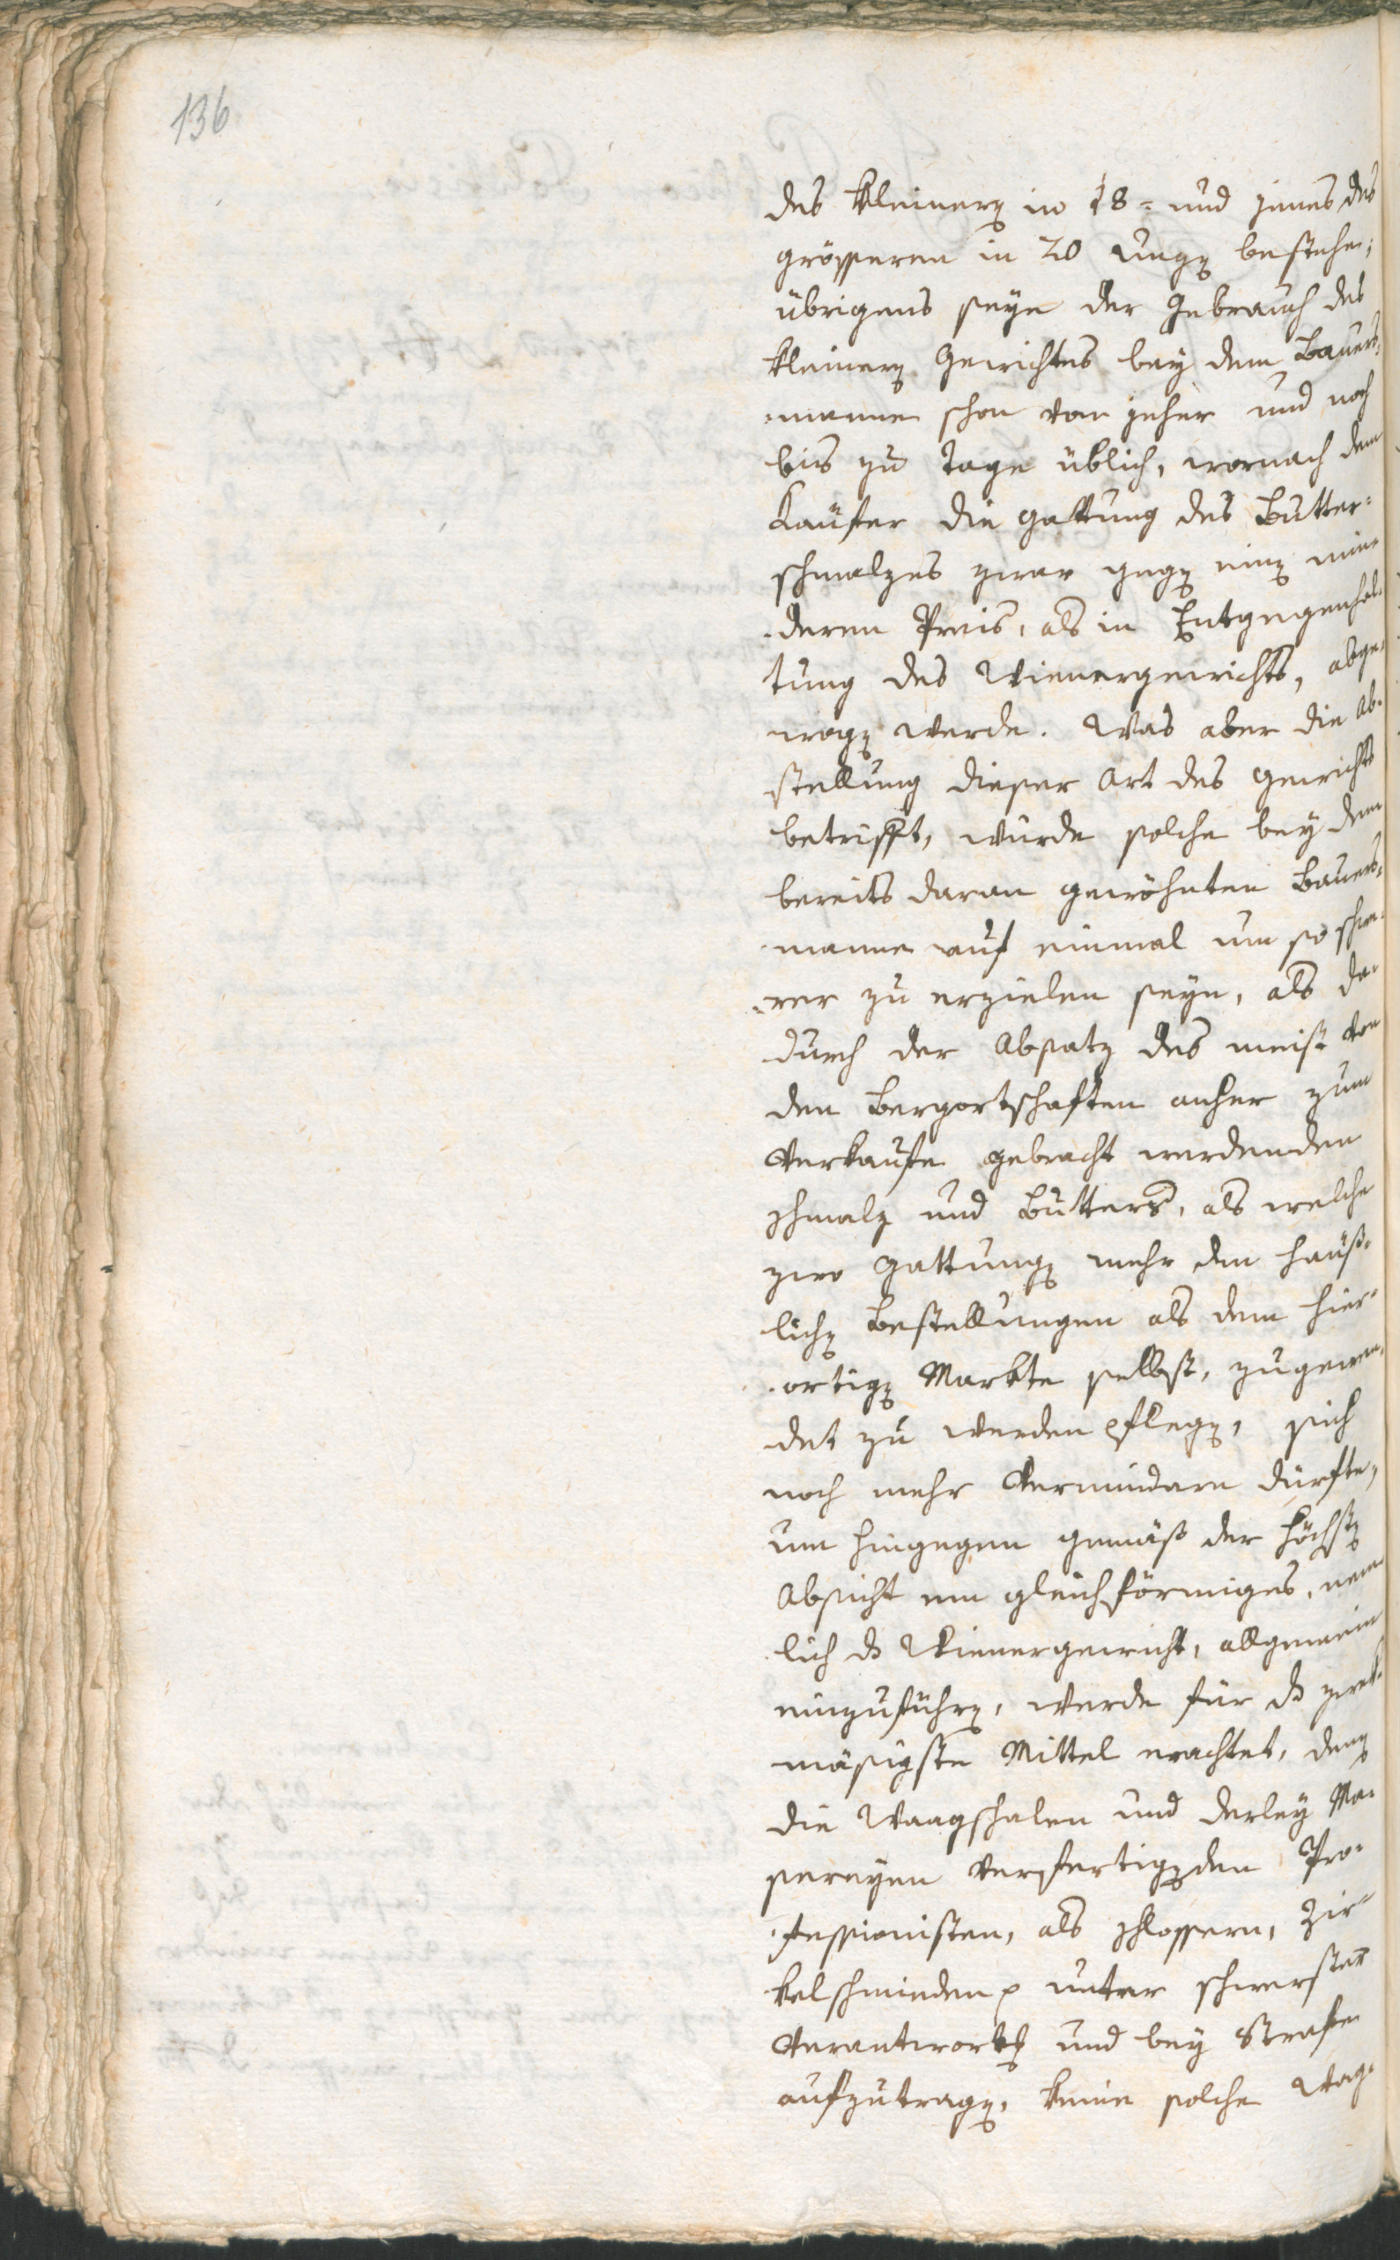 136
des kleinern in 18= und jenes des
grösseren in 20 Unzen bestehe,
übrigens seye der Gebrauch des
kleinern Gewichtes bey dem Bauers=
manne schon von jeher und noch
bis zu Tage üblich, wornach dem
Käufer die Gattung des Butter=
schmalzes zwar gegen einen min=
deren Preis, als in Entgegenhal=
tung des Wienergewichts, abge=
wogen werde. Was aber die Ab=
stellung dieser Art des Gewichts
betrifft, würde solche bey dem
bereits daran gewöhnten Bauers=
manne auf einmal um so schwe=
=rer zu erzielen seyn, als da=
durch der Absatz des meist von
den Bergortschaften anher zum
Verkaufe gebracht werdenden
Schmalz und Butters, als welche
zwo Gattungen mehr den häuß=
lichen Bestellungen als dem hier=
ortigen Markte selbst, zugewen=
det zu werden pflegen, sich
noch mehr vermindern dürfte,
um hingegen gemäß der höchsten
Absicht ein gleichförmiges, nem=
lich das Wienergewicht, allgemein
einzuführen, werde für das zwek=
mäsigste Mittel erachtet, denen
die Waagschalen und derley Ma=
sereyen verfertigenden Pro=
fessionisten, als Schlossern, Zir=
kelschmieden etc unter schwerster
Verantwortung und bey Strafe
aufzutragen, keine solche Wag=